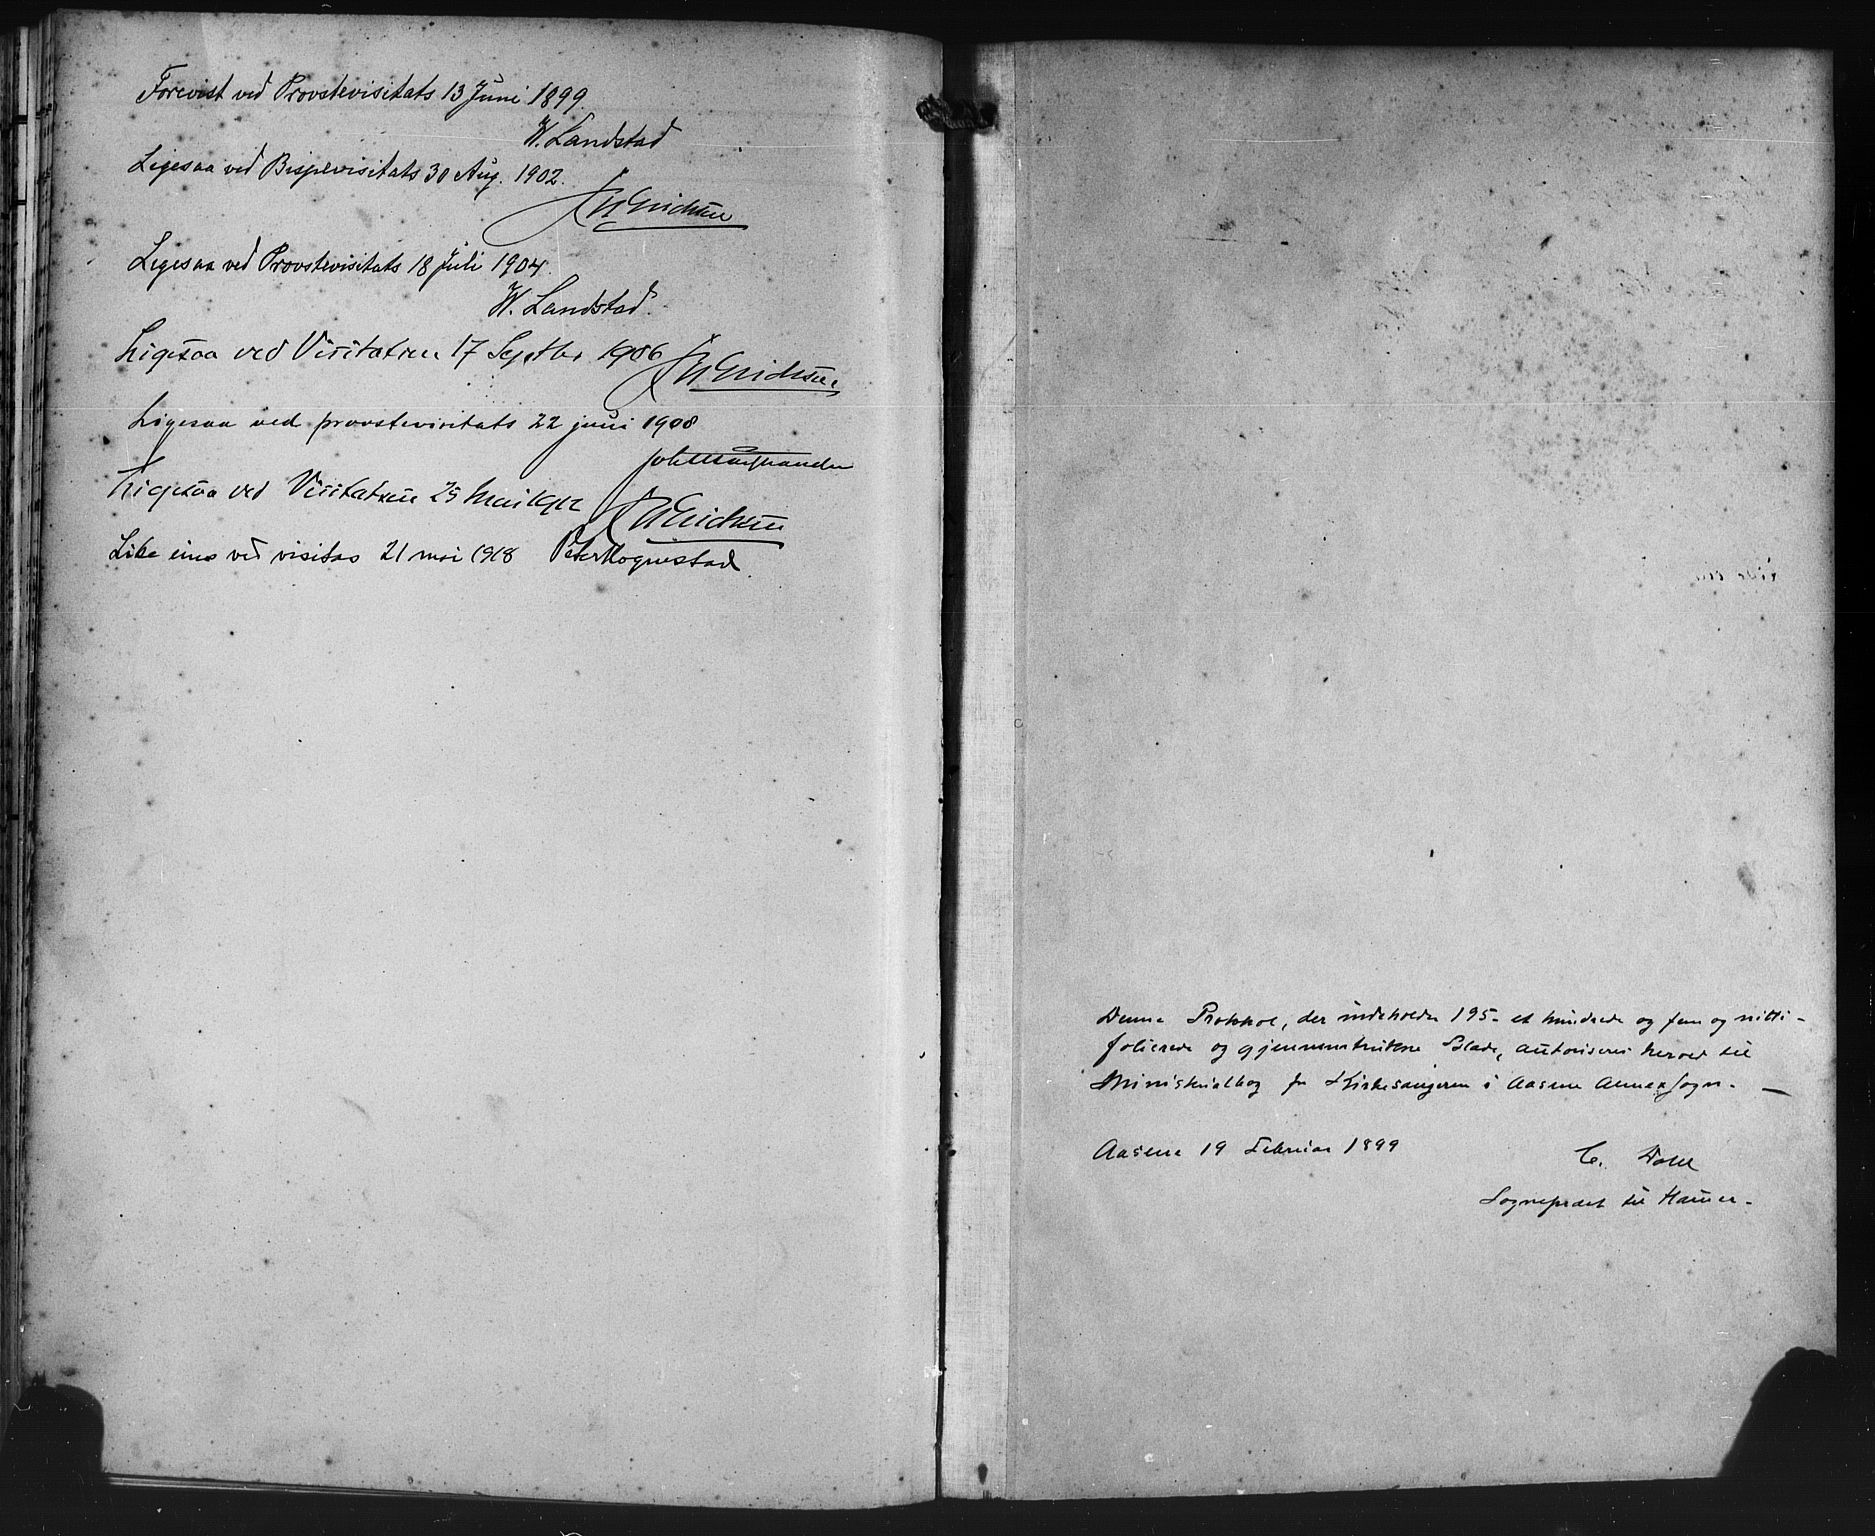 Forevist ved Provstevisitats 13 Juni 1899.
W. Landstad
Ligesaa ved Bispevisitats 30 Aug. 1902.
Ligesaa ved Provstevisitats 18 Juli 1904.
W. Landstad.
Ligesaa ved Visitatsen 17 Septbr 1906
Ligesaa ved provstevisitats 22 juni 1908
Ligesaa ved Visitatsen 25 Mai 1912
Like eins ved visitas 21 mai 1918 Peter Hognestad
Denne Protokol, der indeholder 195 - et hundrede og fem og nitti -
folierede og gjennemtrukne Blade, autoriseres herved til
Ministerialbog for Kirkesangeren i Aasene Annex Sogn. —
Aasene 19 Februar 1899
C. Dahl
Sogneprest til Hamer -